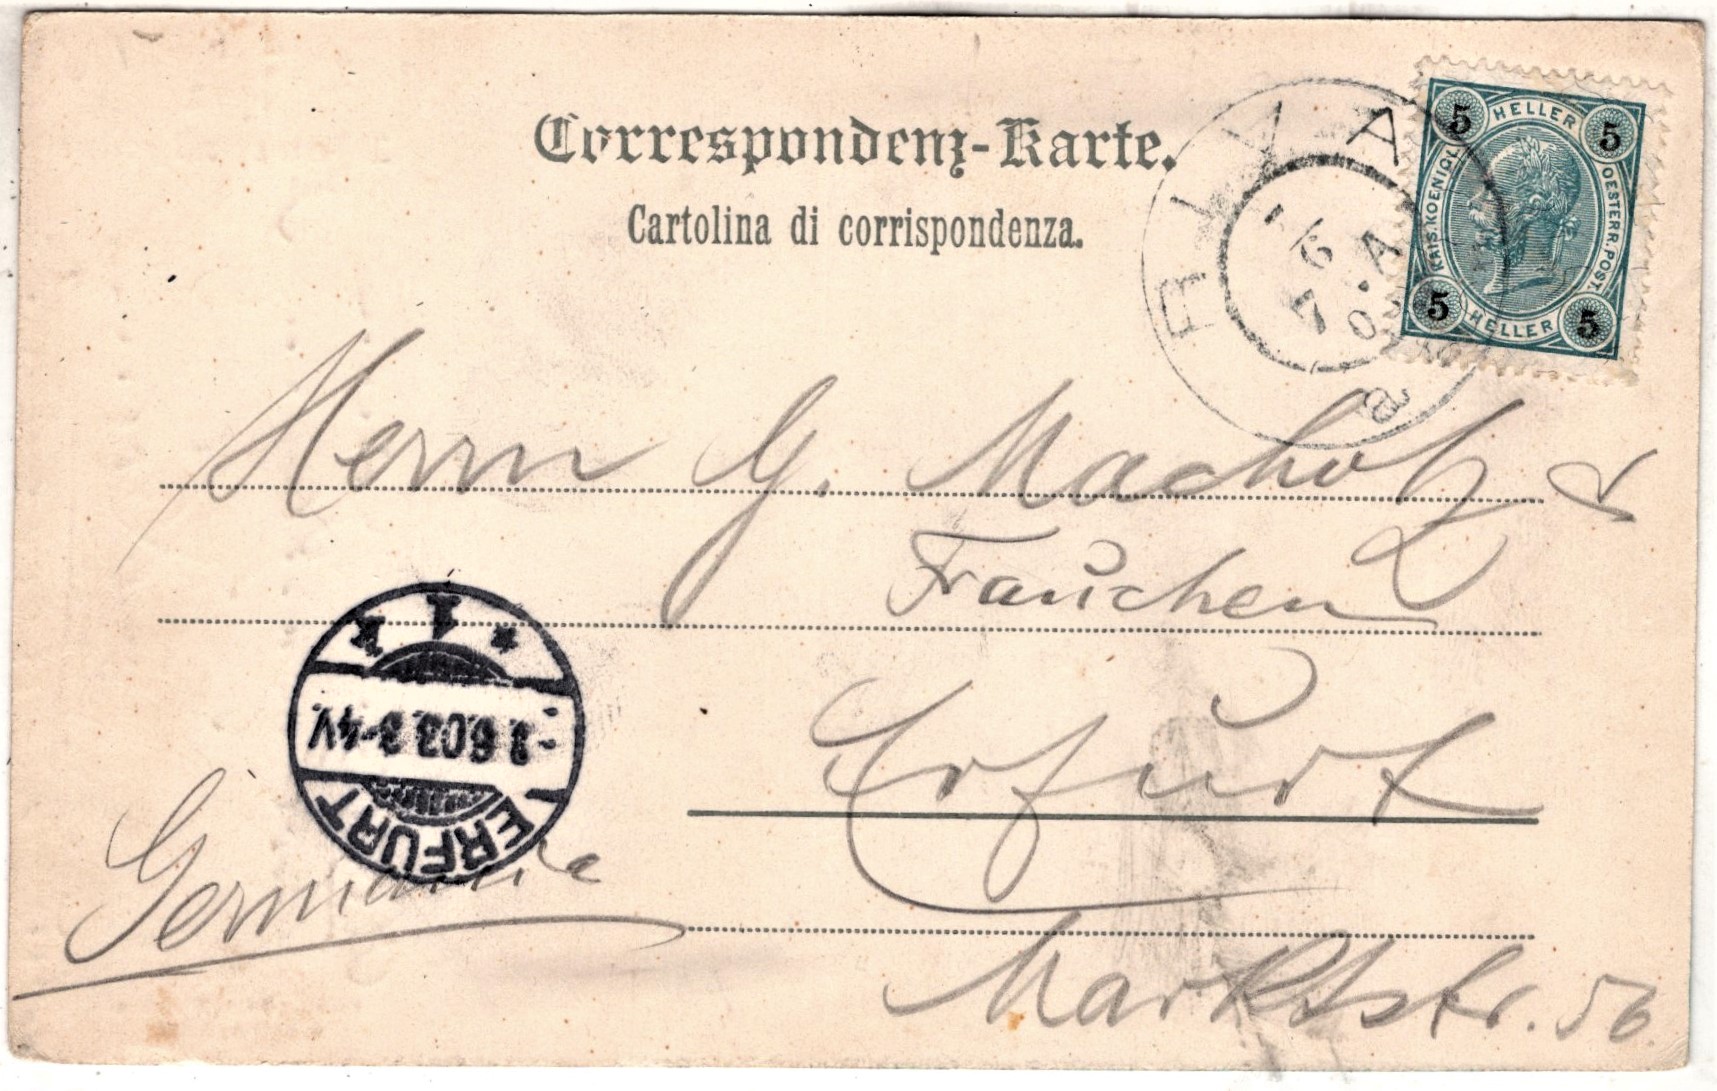 Correspondenz-Karte.
Cartolina di corrispondenza.
5 HELLER 5
KAIS. KOENIGL. OESTERR. POST.
5 HELLER 5
RIVA
7 6
03
a
Herrn G. Macholz &
Frauchen
Erfurt
Marktstr. 56.
Germania
ERFURT
3.6.03. 3-4V.
* 1 k